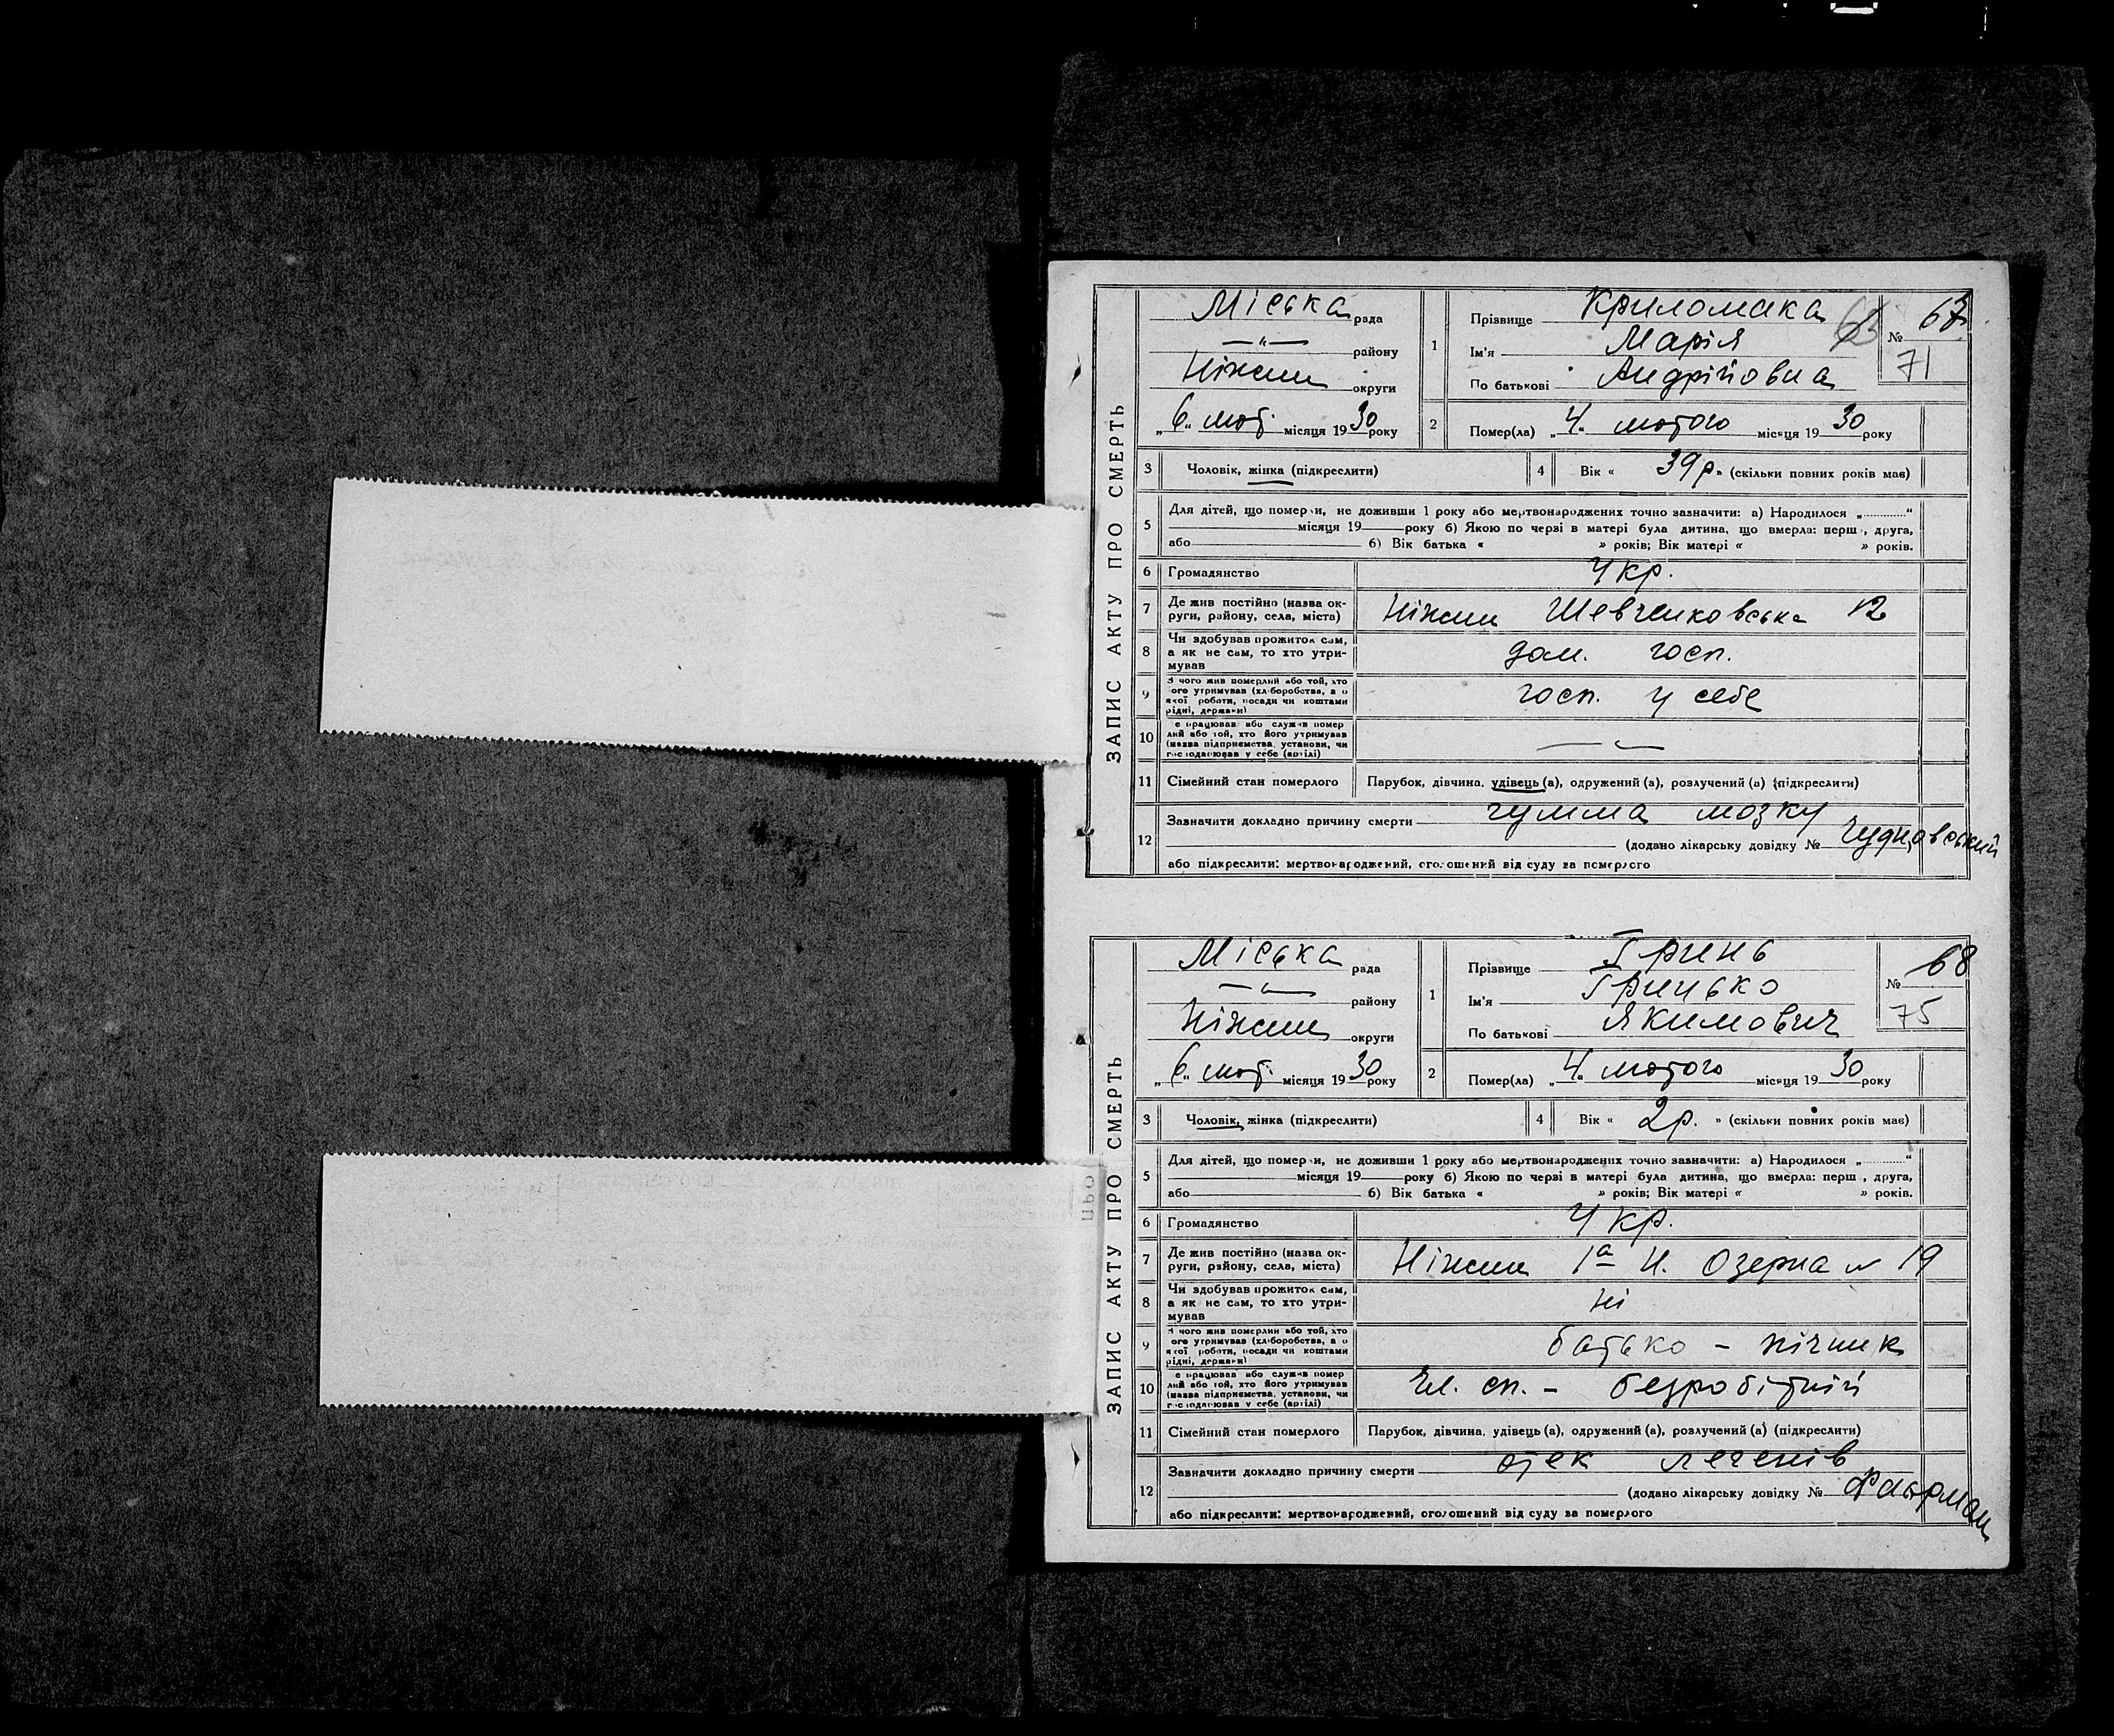 ЗАПИС АКТУ ПРО СМЕРТЬ
Міська рада
—"— району
Ніжин округи
„6" лют. місяця 1930 року
1
Прізвище Криломака
Ім'я Марія
По батькові Андрійовна
63
№ 67
71
2
Помер(ла) „4" лютого місяця 1930 року
3 Чоловік, жінка (підкреслити)
4 Вік « 39 р. (скільки повних років має)
5
Для дітей, що померли, не доживши 1 року або мертвонароджених точно зазначити: а) Народилося „..........“
місяця 19 року б) Якою по черзі в матері була дитина, що вмерла: перш , друга,
або б) Вік батька « » років; Вік матері « » років.
6 Громадянство Укр.
7 Де жив постійно (назва округи, району, села, міста) Ніжин Шевченковська 12
8 Чи здобував прожиток сам, а як не сам, то хто утримував дом. госп.
9 З чого жив померлий або той, хто ого утримував (хліборобства, а о якої роботи, посади чи коштами рідні, держави) госп. у себе
10 е працював або служив помер лий або той, хто його утримував (назва підприємства, установи, чи господарював у себе (артілі) —"—
11 Сімейний стан померлого Парубок, дівчина, удівець (а), одружений (а), розлучений (а) (підкреслити)
12
Зазначити докладно причину смерти гумма мозку
(додано лікарську довідку № Чудновський
або підкреслити: мертвонароджений, оголошений від суду за померлого
ЗАПИС АКТУ ПРО СМЕРТЬ
Міська рада
—"— району
Ніжин округи
„6" лют. місяця 1930 року
1
Прізвище Гринь
Ім'я Гринько
По батькові Якимович
№ 68
75
2
Помер(ла) „4" лютого місяця 1930 року
3 Чоловік, жінка (підкреслити)
4 Вік « 2 р. » (скільки повних років має)
5
Для дітей, що померли, не доживши 1 року або мертвонароджених точно зазначити: а) Народилося „..........“
місяця 19 року б) Якою по черзі в матері була дитина, що вмерла: перш , друга,
або б) Вік батька « » років; Вік матері « » років.
6 Громадянство Укр.
7 Де жив постійно (назва округи, району, села, міста) Ніжин 1а Н. Озерна № 19
8 Чи здобував прожиток сам, а як не сам, то хто утримував ні
9 З чого жив померлий або той, хто ого утримував (хліборобства, а о якої роботи, посади чи коштами рідні, держави) батько - пічник
10 е працював або служив помер лий або той, хто його утримував (назва підприємства, установи, чи господарював у себе (артілі) Чл. сп. - безробітній
11 Сімейний стан померлого Парубок, дівчина, удівець (а), одружений (а), розлучений (а) (підкреслити)
12
Зазначити докладно причину смерти отек легенів
(додано лікарську довідку №
або підкреслити: мертвонароджений, оголошений від суду за померлого